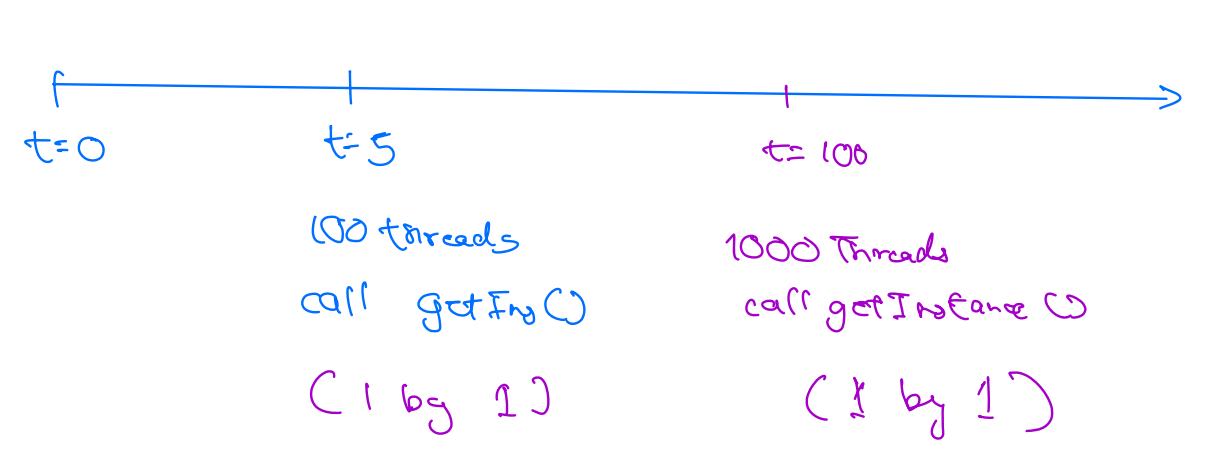 t=0
t=5
t=100
100 threads
call getIns()
(1 by 1)
1000 Threads
call getInstance()
(1 by 1)